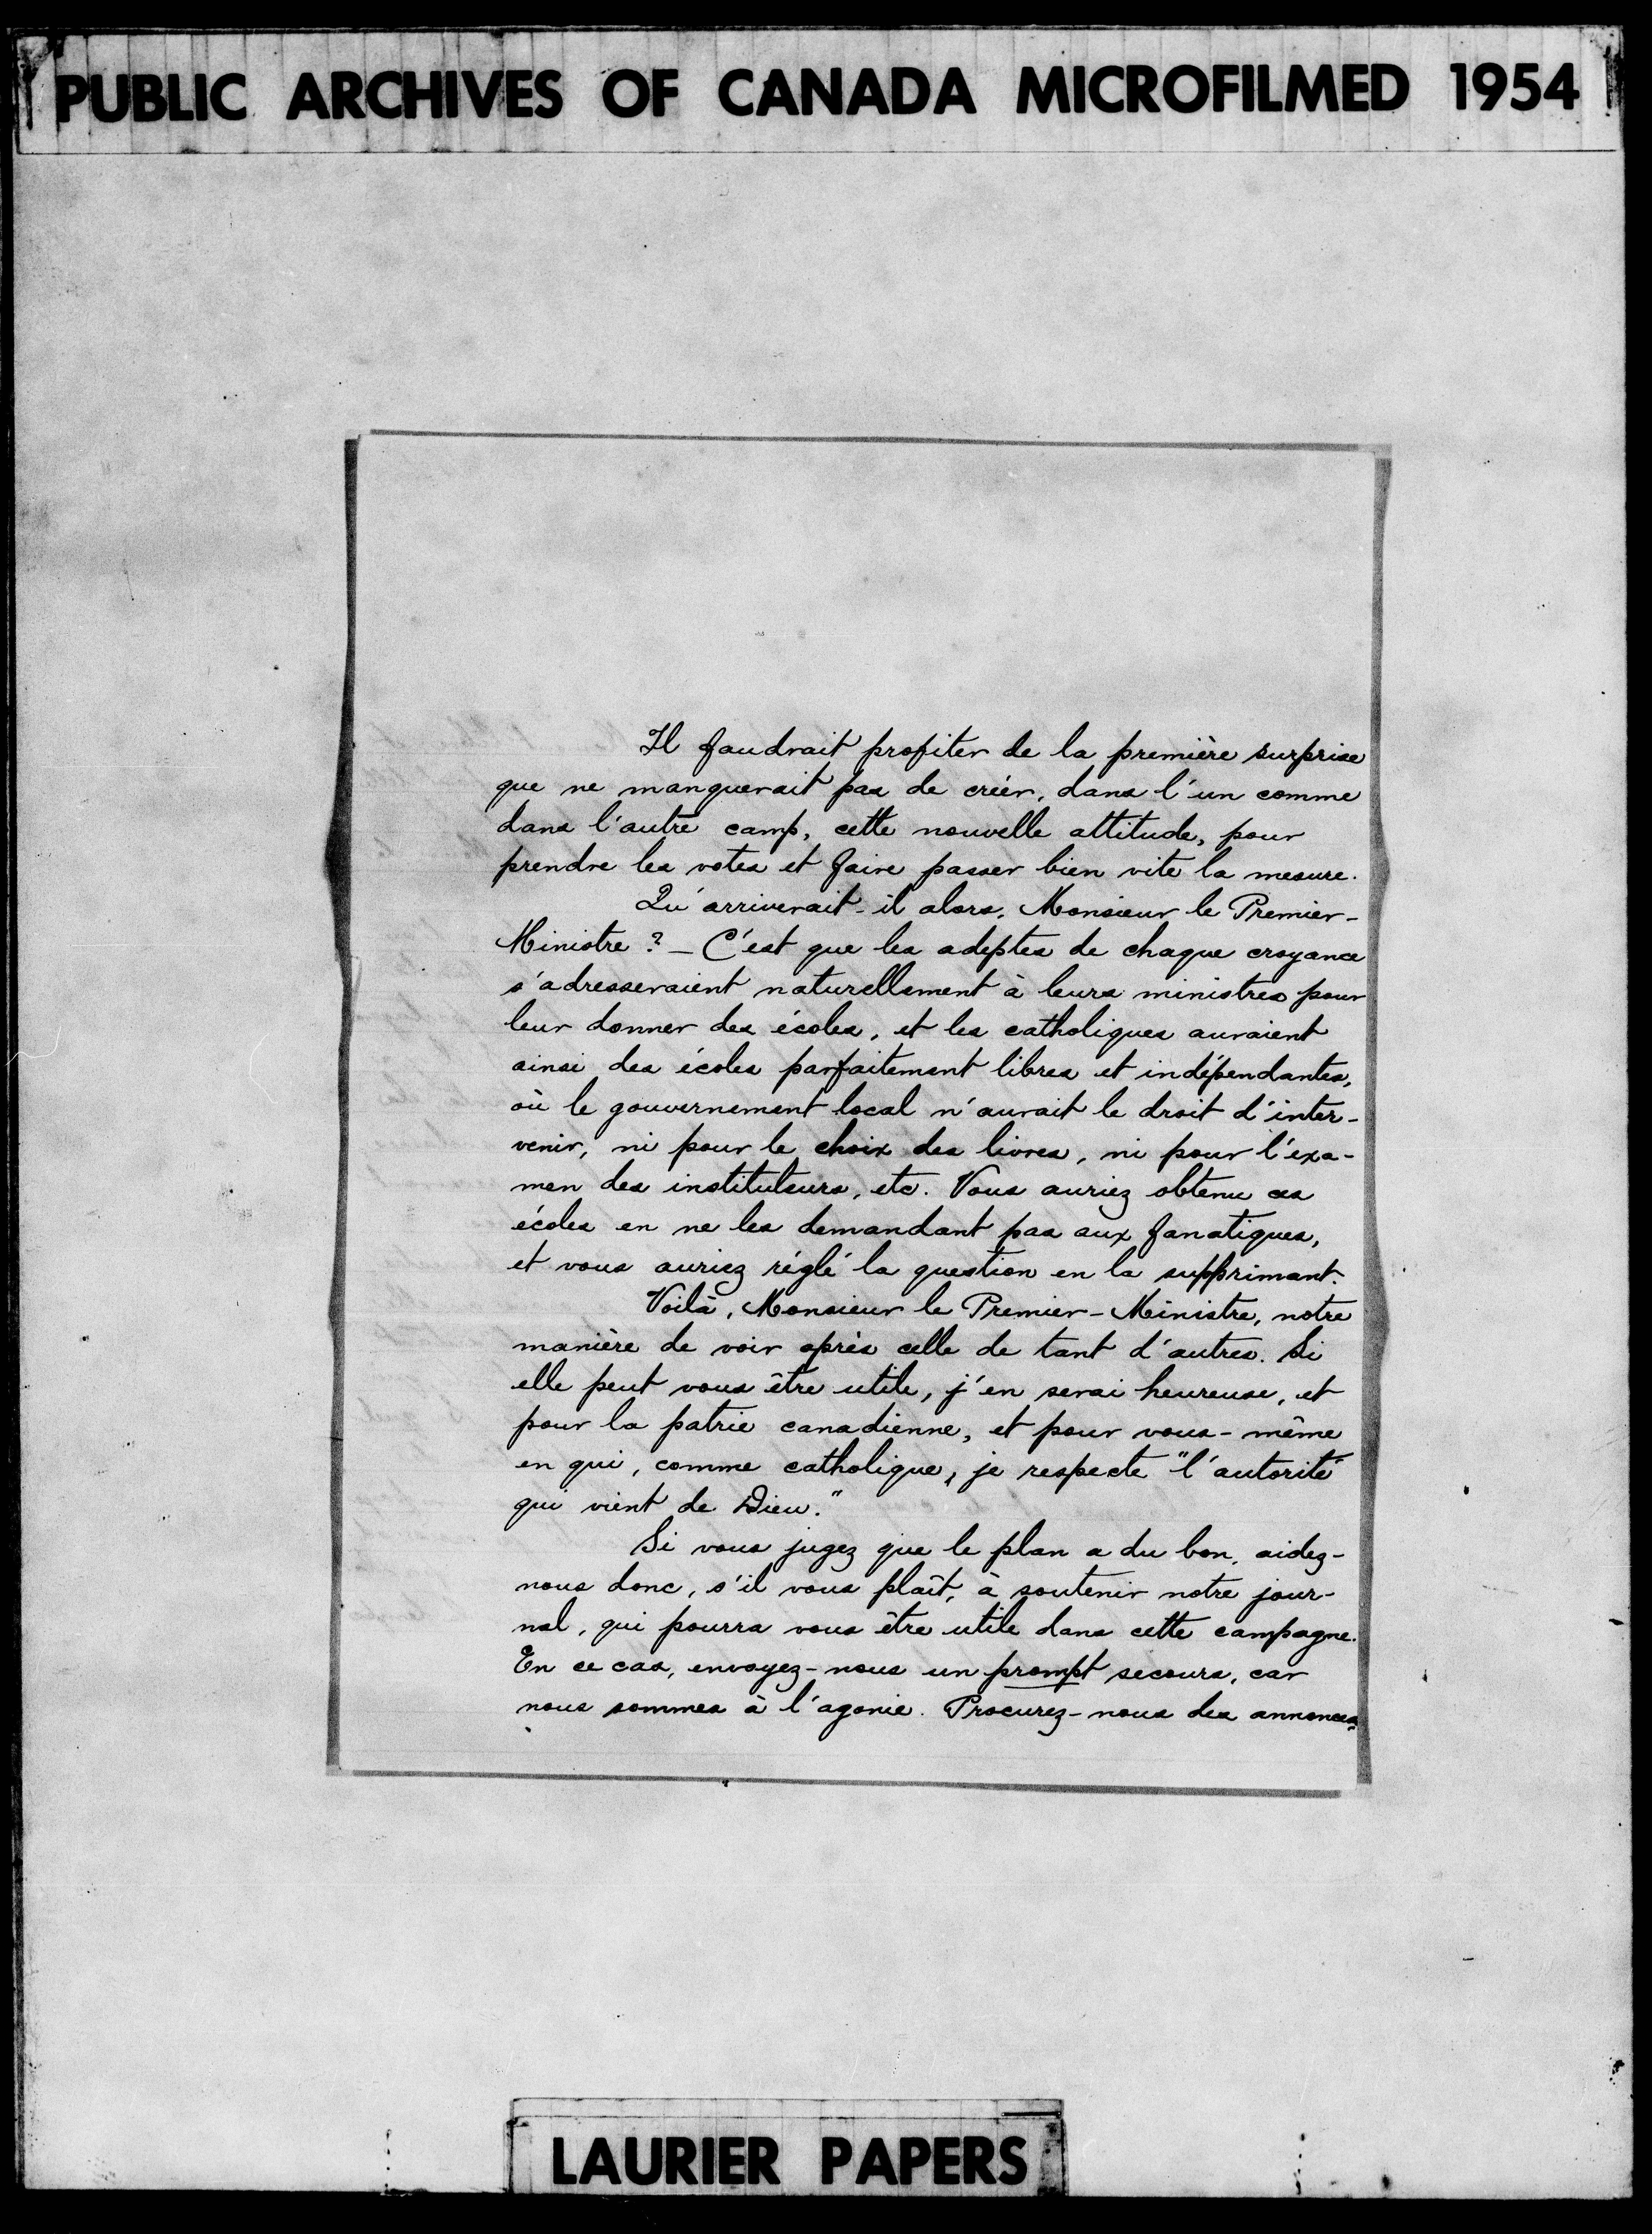 PUBLIC ARCHIVES OF CANADA MICROFILMED 1954
Il faudrait profiter de la première surprise
que ne manquerait pas de créer, dans l'un comme
dans l'autre camp, cette nouvelle attitude, pour
prendre les votes et faire passer bien vite la mesure.
Qu'arriverait-il alors, Monsieur le Premier-
Ministre ? - C'est que les adeptes de chaque croyance
s'adresseraient naturellement à leurs ministres pour
leur donner des écoles, et les catholiques auraient
ainsi des écoles parfaitement libres et indépendantes,
où le gouvernement local n'aurait le droit d'inter-
venir, ni pour le choix des livres, ni pour l'exa-
men des instituteurs, etc. Vous auriez obtenu ces
écoles en ne les demandant pas aux fanatiques,
et vous auriez réglé la question en la supprimant.
Voilà, Monsieur le Premier-Ministre, notre
manière de voir après celle de tant d'autres. Si
elle peut vous être utile, j'en serai heureuse, et
pour la patrie canadienne, et pour vous-même
en qui, comme catholique, je respecte "l'autorité
qui vient de Dieu."
Si vous jugez que le plan a du bon, aidez-
nous donc, s'il vous plaît, à soutenir notre jour-
nal, qui pourra vous être utile dans cette campagne.
En ce cas, envoyez-nous un prompt secours, car
nous sommes à l'agonie. Procurez-nous des annonces
LAURIER PAPERS